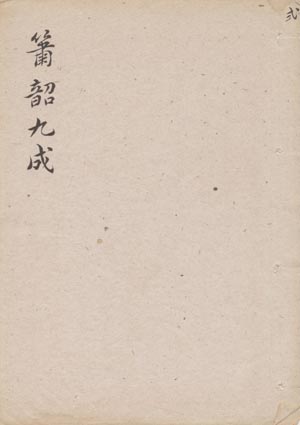 簫韶九成
弍